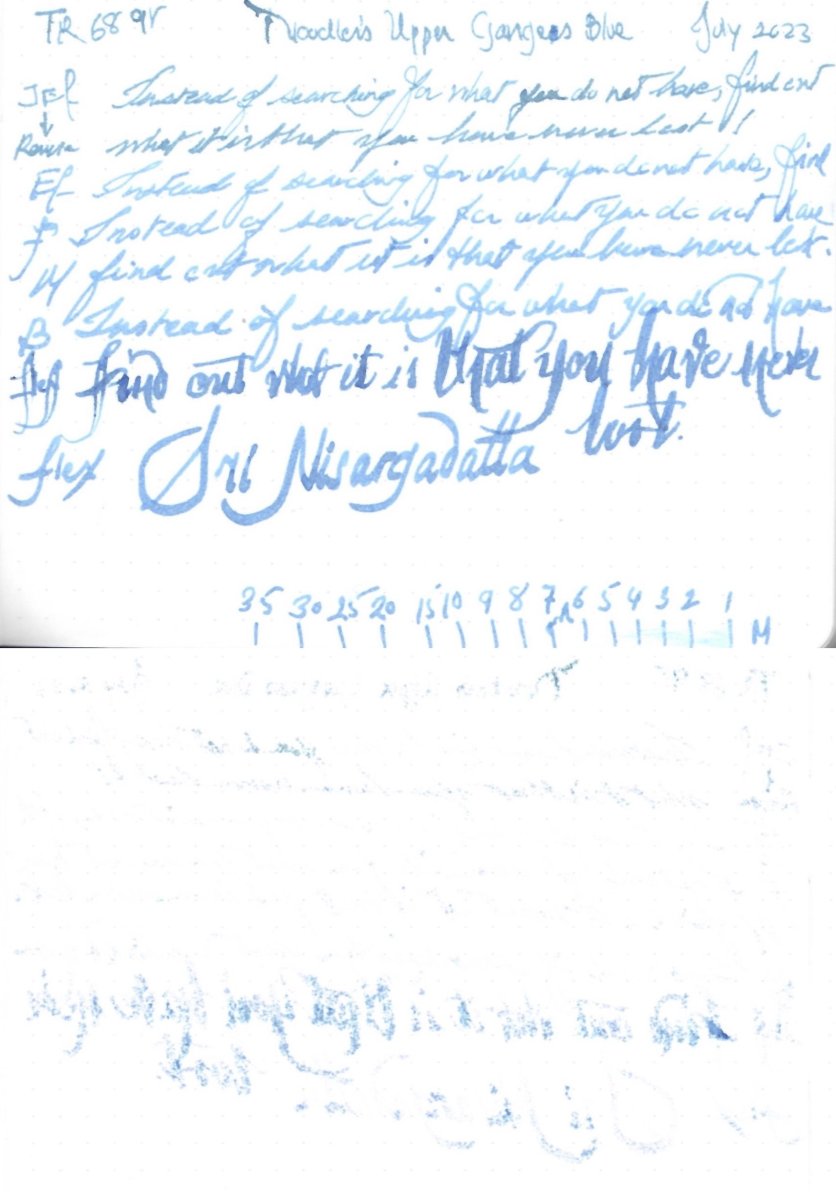 TR 68 gr Noodler's Upper Ganges Blue July 2023
JEf Instead of searching for what you do not have, find out
Reverse what it is that you have never lost !!
Ef Instead of searching for what you do not have, find
F Instead of searching for what you do not have
M find out what it is that you have never lost.
B Instead of searching for what you do not have
flex find out what it is that you have never
lost.
flex Sri Nisargadatta
35 30 25 20 15 10 9 8 7 6 5 4 3 2 1
M